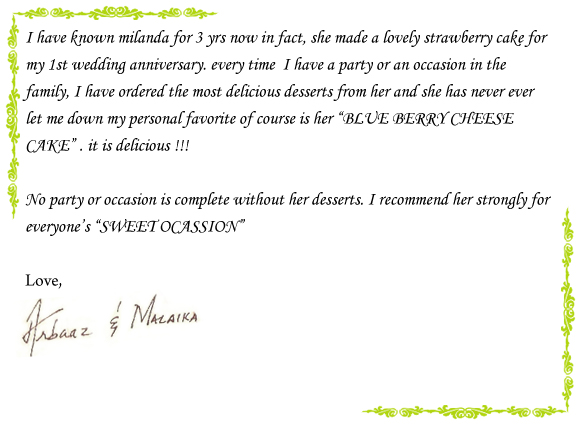 I have known milanda for 3 yrs now in fact, she made a lovely strawberry cake for
my 1st wedding anniversary. every time I have a party or an occasion in the
family, I have ordered the most delicious desserts from her and she has never ever
let me down my personal favorite of course is her “BLUE BERRY CHEESE
CAKE” . it is delicious !!!
No party or occasion is complete without her desserts. I recommend her strongly for
everyone’s “SWEET OCASSION”
Love,
Arbaaz & MALAIKA